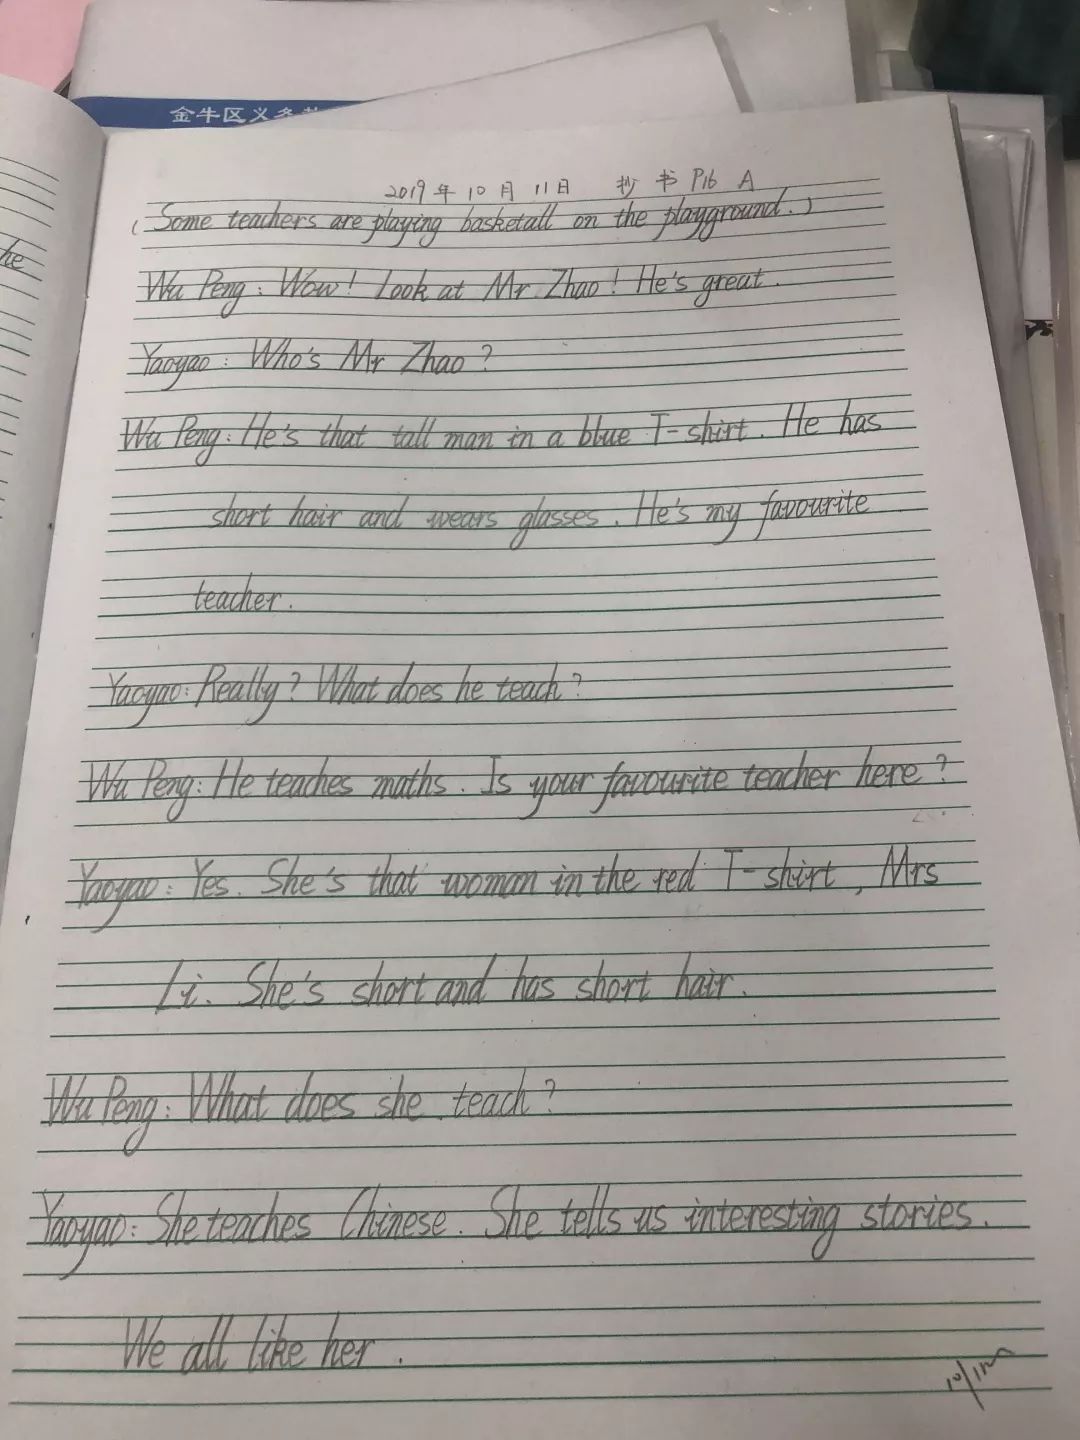 金牛区义务教
2019年10月11日 抄书 P16 A
(Some teachers are playing basketall on the playground.)
he
Wu Peng: Wow! Look at Mr Zhao! He's great.
Yaoyao: Who's Mr Zhao?
Wu Peng: He's that tall man in a blue T-shirt. He has
short hair and wears glasses. He's my favourite
teacher.
Yaoyao: Really? What does he teach?
Wu Peng: He teaches maths. Is your favourite teacher here?
Yaoyao: Yes. She's that woman in the red T-shirt, Mrs
Li. She's short and has short hair.
Wu Peng: What does she teach?
Yaoyao: She teaches Chinese. She tells us interesting stories.
We all like her.